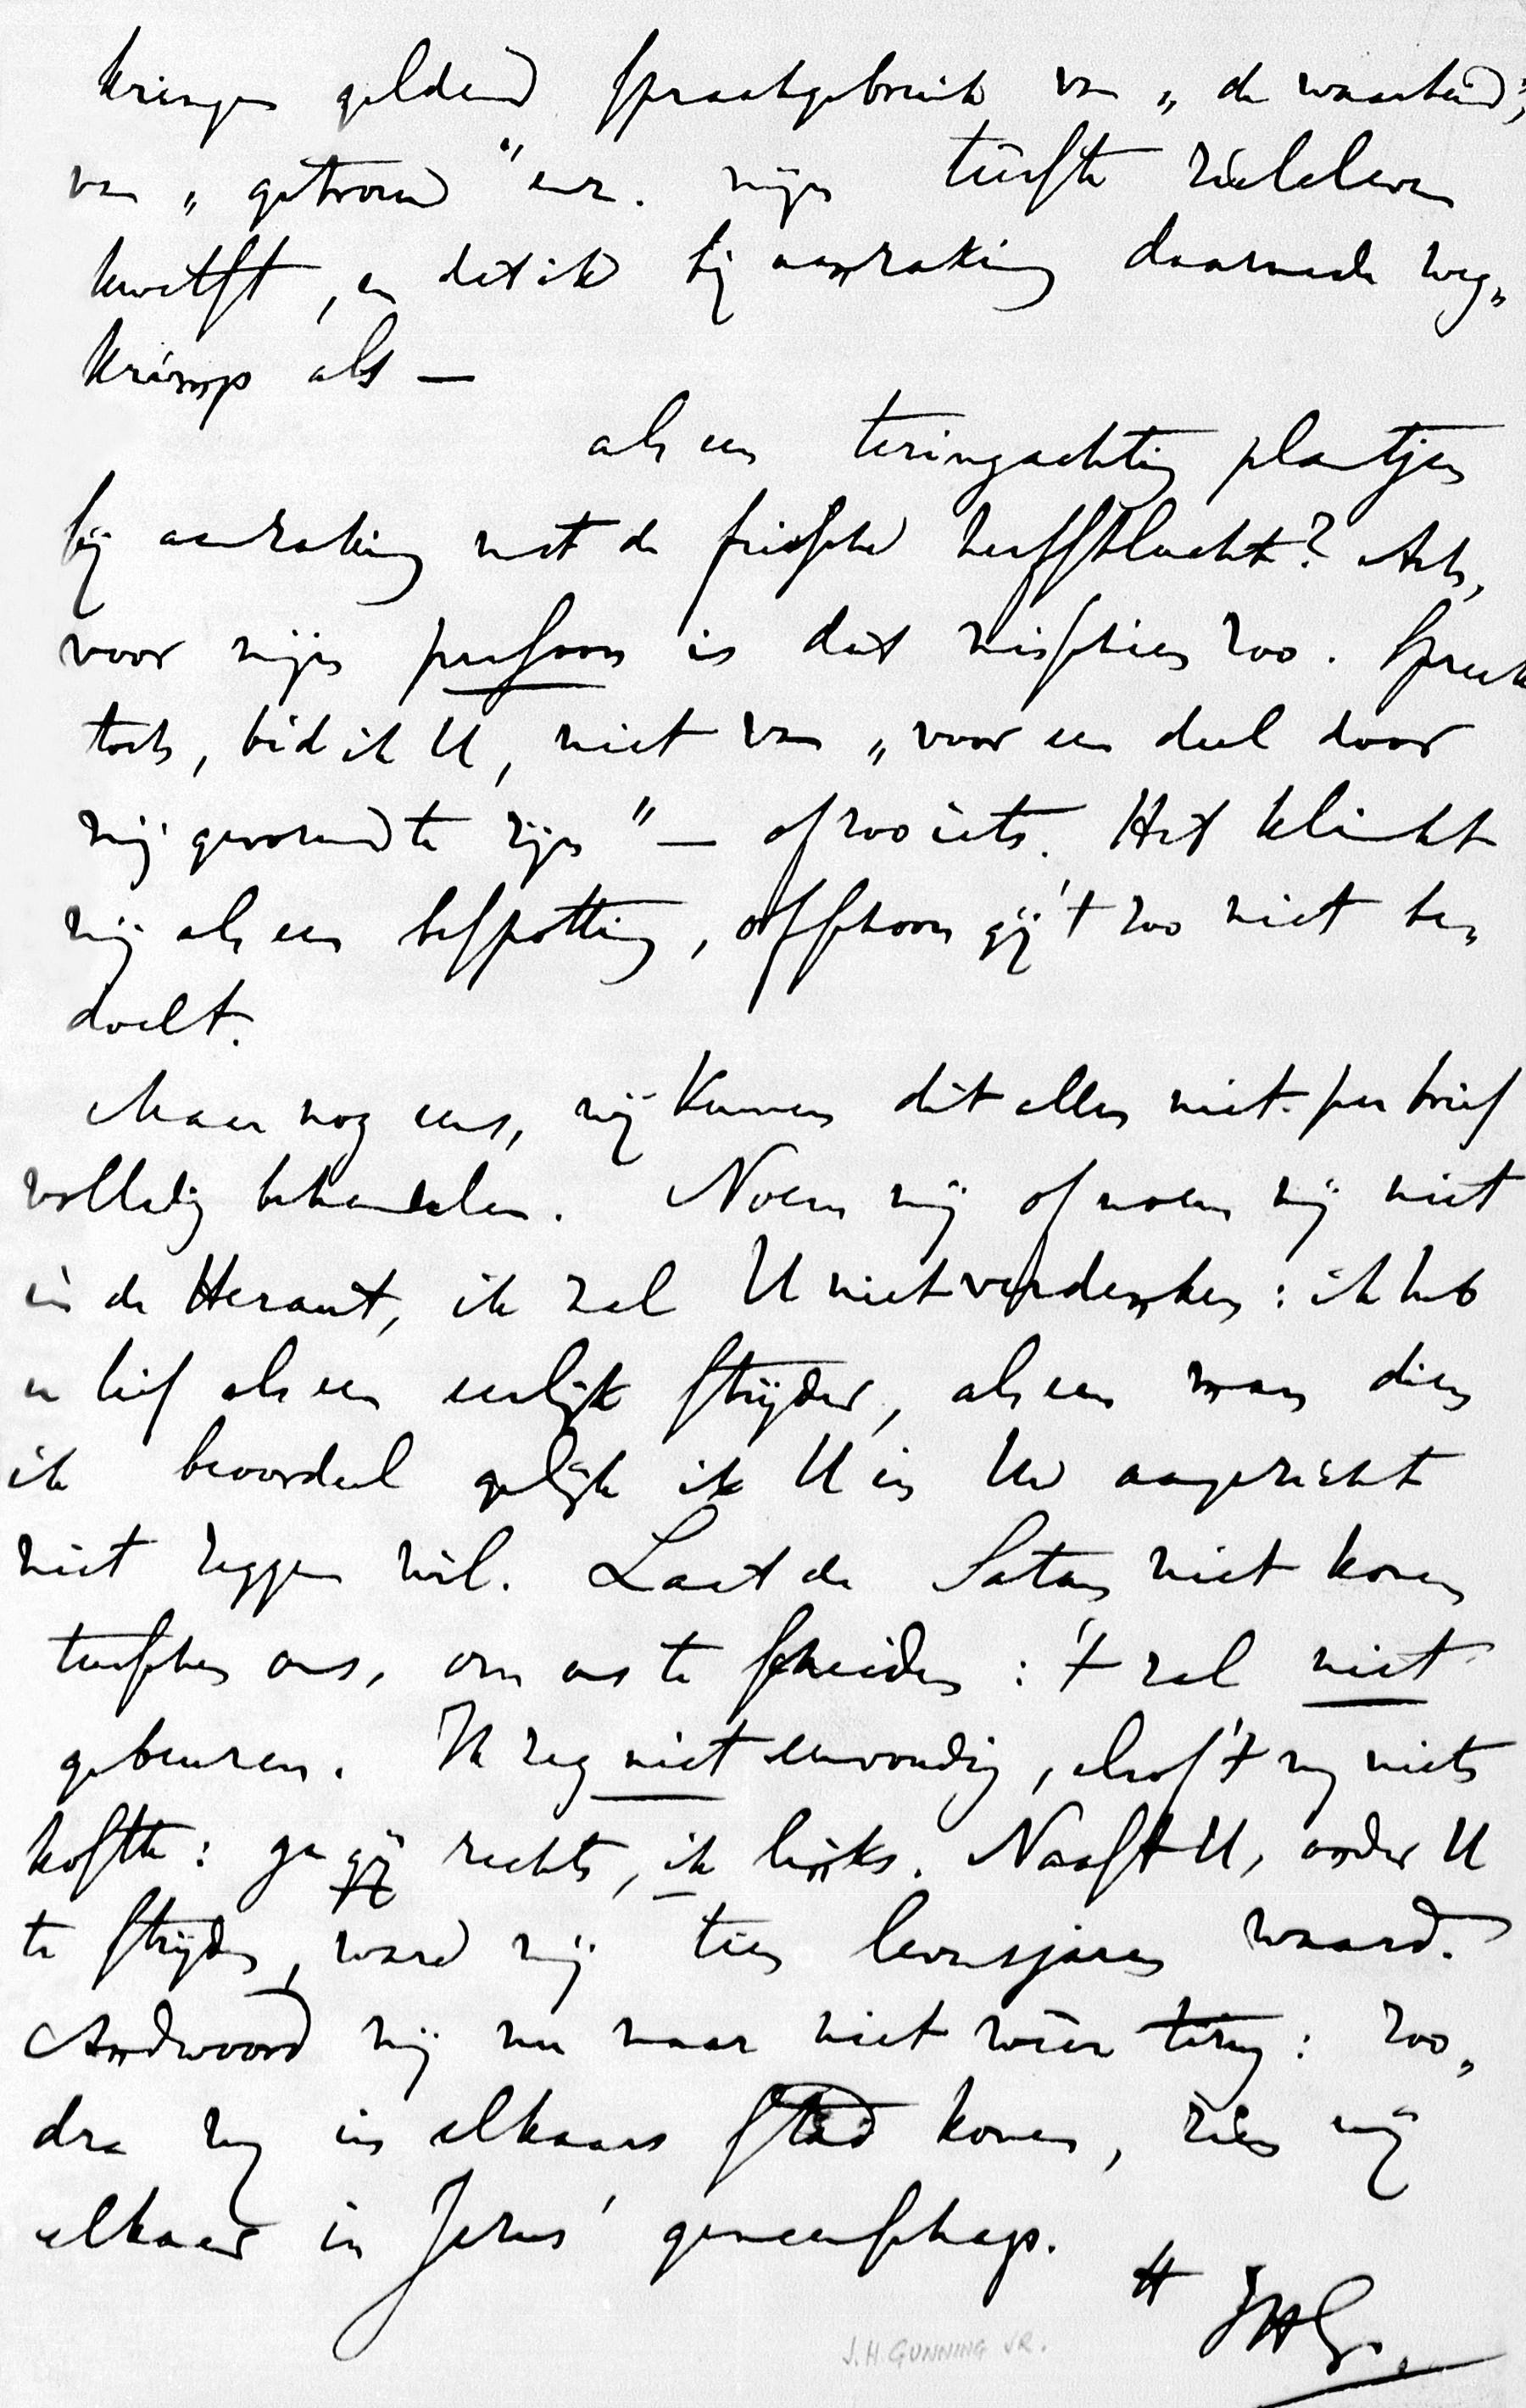 kringen geldend spraakgebruik van „de waarheid",
van „getrouw" enz. mijn teerste zieleleven
kwetst, en dat ik bij aanraking daarmede weg„
krimp als —
als een teringachtig plantjen
bij aanraking met de frissche herfstlucht? Ach,
voor mijn persoon is dat misschien zoo. Spreek
toch, bid ik U, niet van „voor een deel door
mij gevormd te zijn" — of zoo iets. Het klinkt
mij als een bespotting, ofschoon gij 't zoo niet be„
doelt.
Maar nog eens, wij kunnen dit alles niet per brief
volledig behandelen. Noem mij of noem mij niet
in de Heraut, ik zal U niet verdenken: ik heb
u lief als een eerlijk strijder, als een man dien
ik beoordeel gelijk ik U in Uw aangezicht
niet zeggen wil. Laat de Satan niet komen
tusschen ons, om ons te scheiden: 't zal niet
gebeuren. Ik zeg niet eenvoudig, alsof 't mij niets
kostte: ga gij rechts, ik links. Naast U, onder U
te strijden, ware mij tien levensjaren waard.
Andwoord mij nu maar niet weer: zoo„
dra wij in elkaars stad komen, zien wij
elkaar in Jezus' gemeenschap.
tt JHG.
J.H. GUNNING JR.